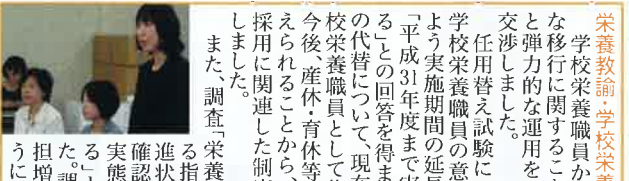 栄養教諭・学校栄養
学校栄養職員か
な移行に関するこ
と弾力的な運用を
交渉しました。
任用替え試験に
学校栄養職員の意
よう実施期間の延長
「平成31年度まで実
る」との回答を得ま
の代替について、現在
校栄養職員としてや
今後、産休・育休等
えられることから、
採用に関連した制度
しました。
また、調査「栄養
る指
進状
確認
実態
る」と
た。調
担増
うに